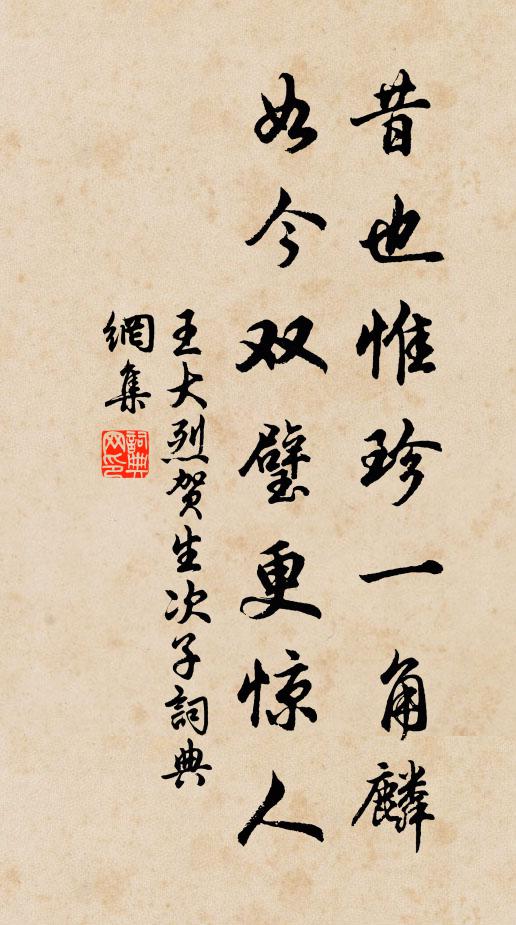 昔也惟珍一角麟
如今双璧更惊人
王大烈贺生次子詞典
網集
詞典网印